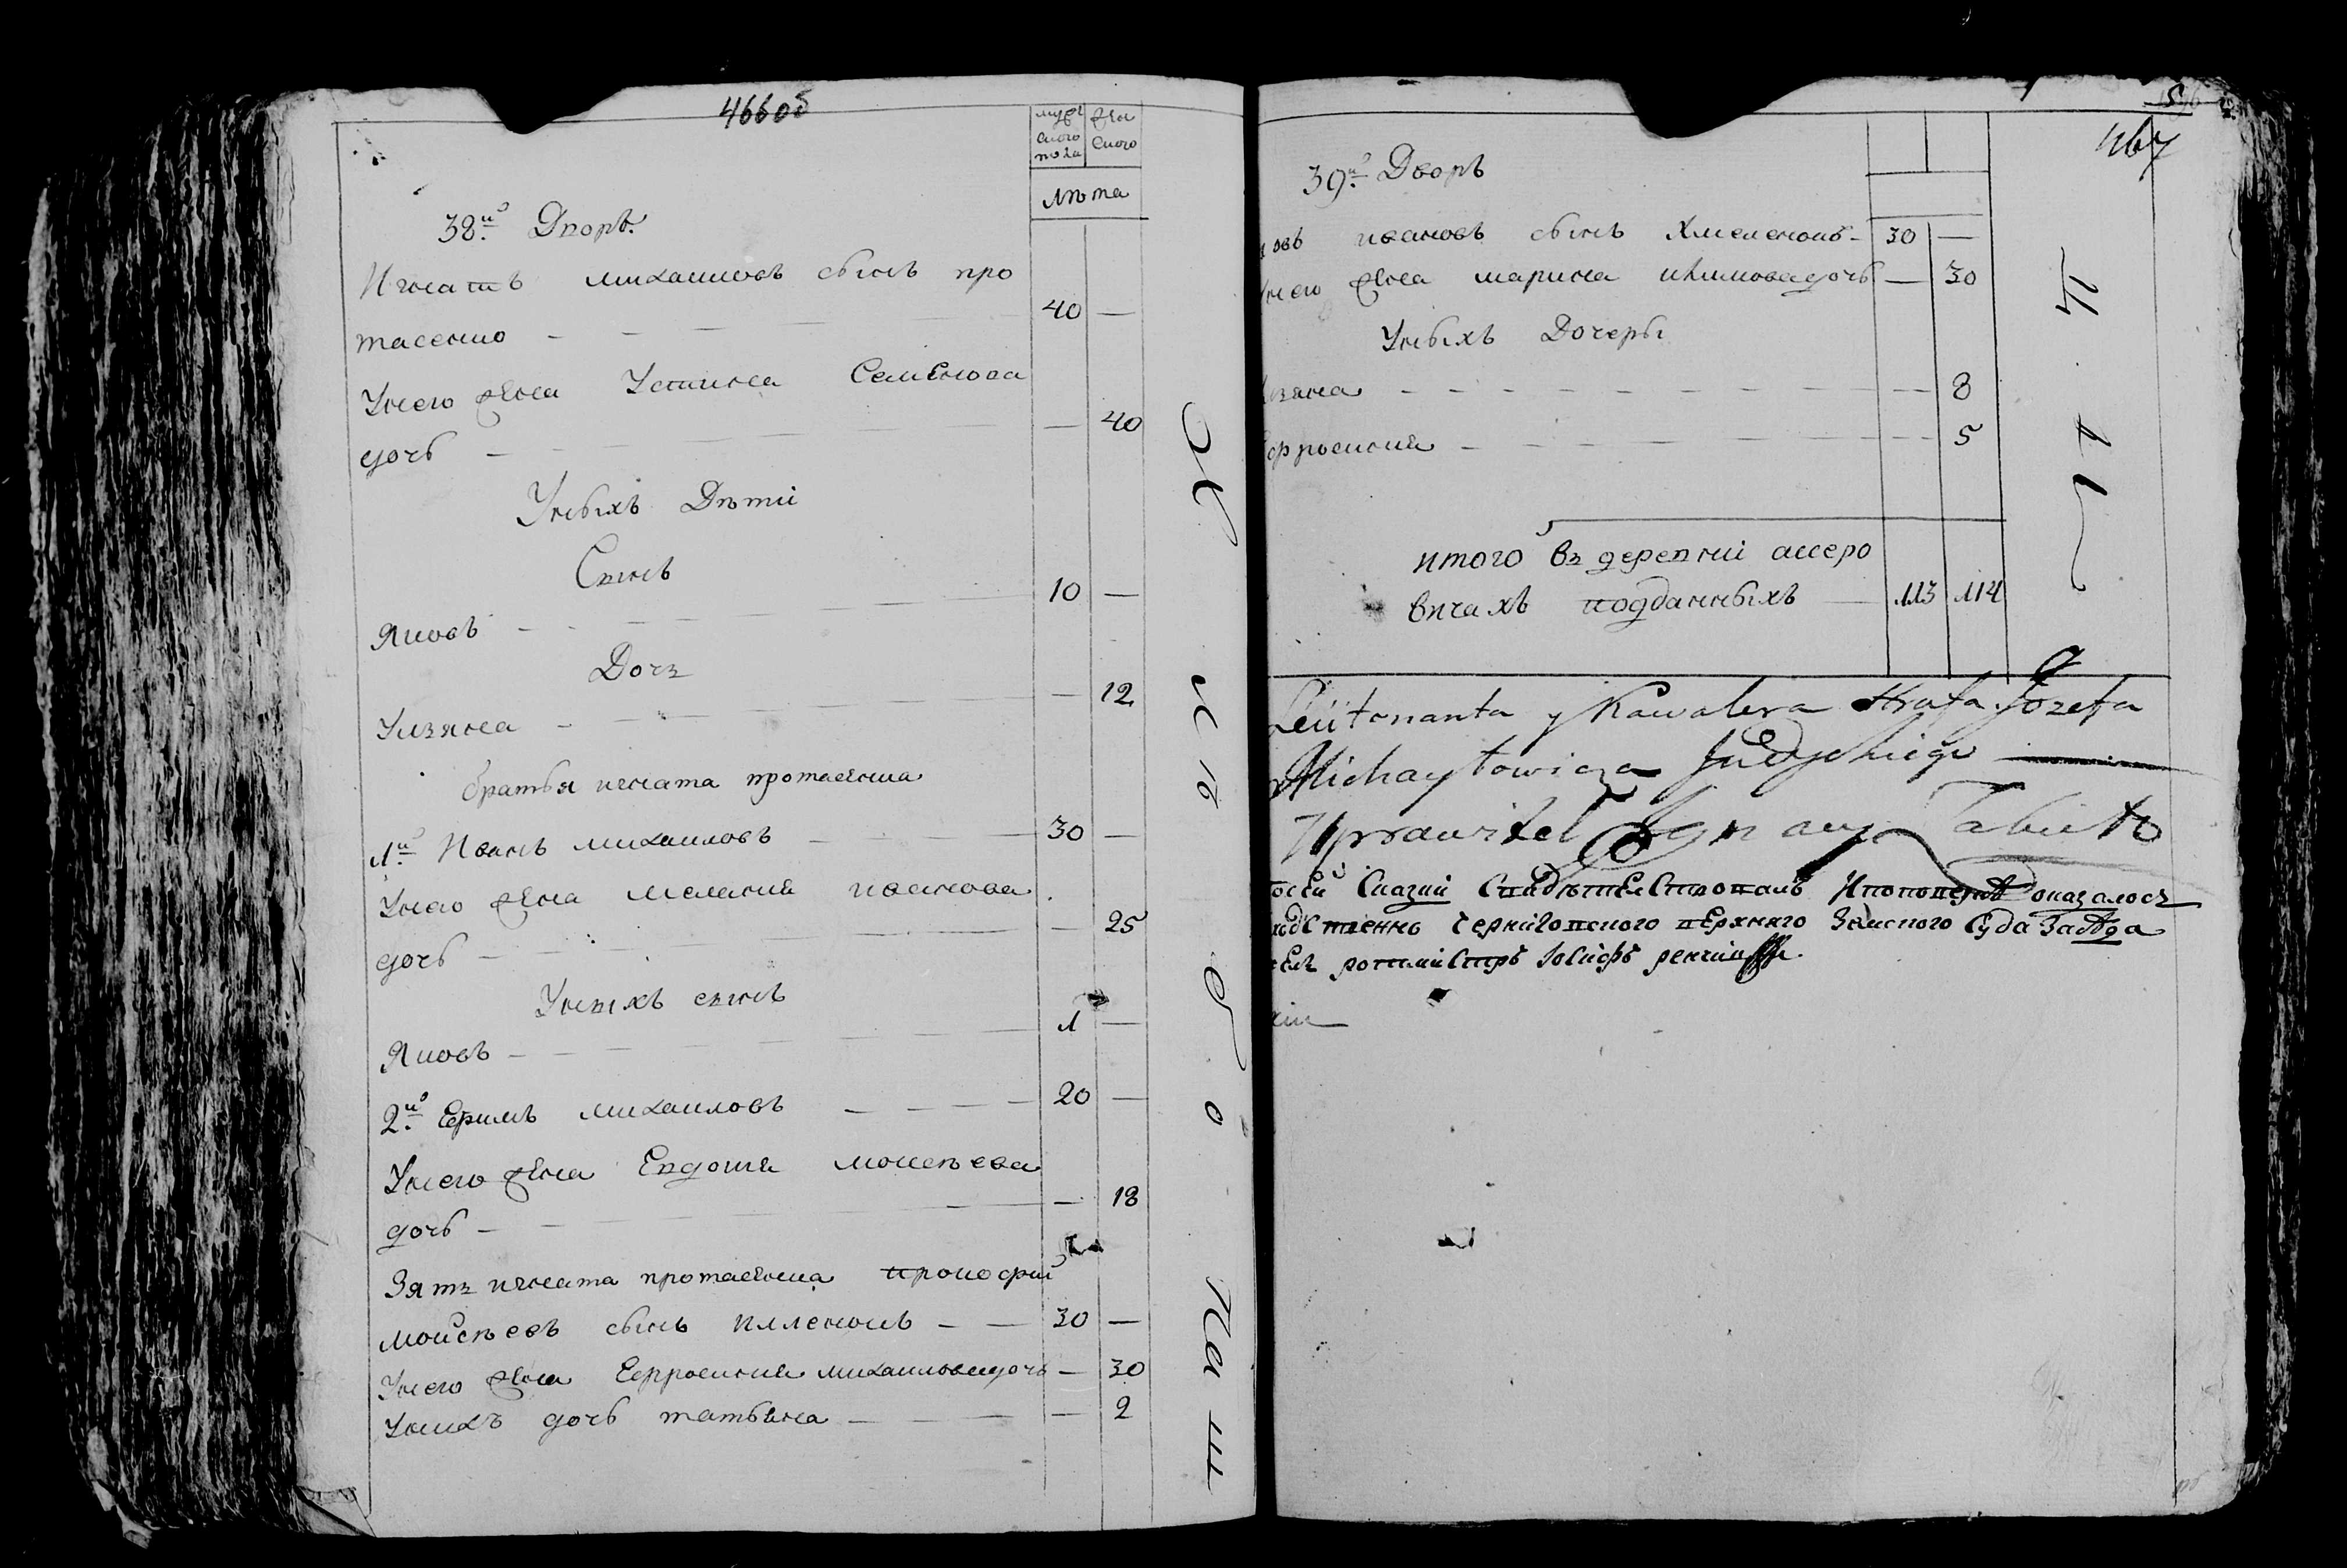 466об
мужеского пола
женского
лѣта
38й Дворъ
Игнатъ михаиловъ сынъ про
тасенко 40 —
Унего жена Устинка Семенова
дочь — 40
Унихъ Дѣти
Сынъ
Яковъ 10 —
Дочъ
Улзяна — 12
братья игната протасенка
1й Иванъ михаиловъ 30 —
Унего жена мелания иванова
дочь — 25
Унихъ сынъ
Яковъ 1 —
2й Ефимъ михаиловъ 20 —
Унего жена Евдокия моисѣева
дочь — 18
Зять игната протасенка прокофий
моисѣевъ сынъ 30 —
Унего жена Ефросиния михаиловадочь — 30
Унихъ дочь татьяна — 2
467
39й Дворъ
овъ ивановъ сынъ Хмеленокъ 30 —
него жена марина дочь — 30
Унихъ Дочеры
лзяна — 8
фросиния — 5
итого въ деревни ассеро
вичахъ подданныхъ 113 114
Leütonanta y Kawalera Hrafa Jozefa
Michayłowicza Judyckiego
Uprawitel
Сказки Свидѣтелствовалъ оказалось
Черниговского верхняго Земского Суда Засѣда
ротмистръ Іосифъ